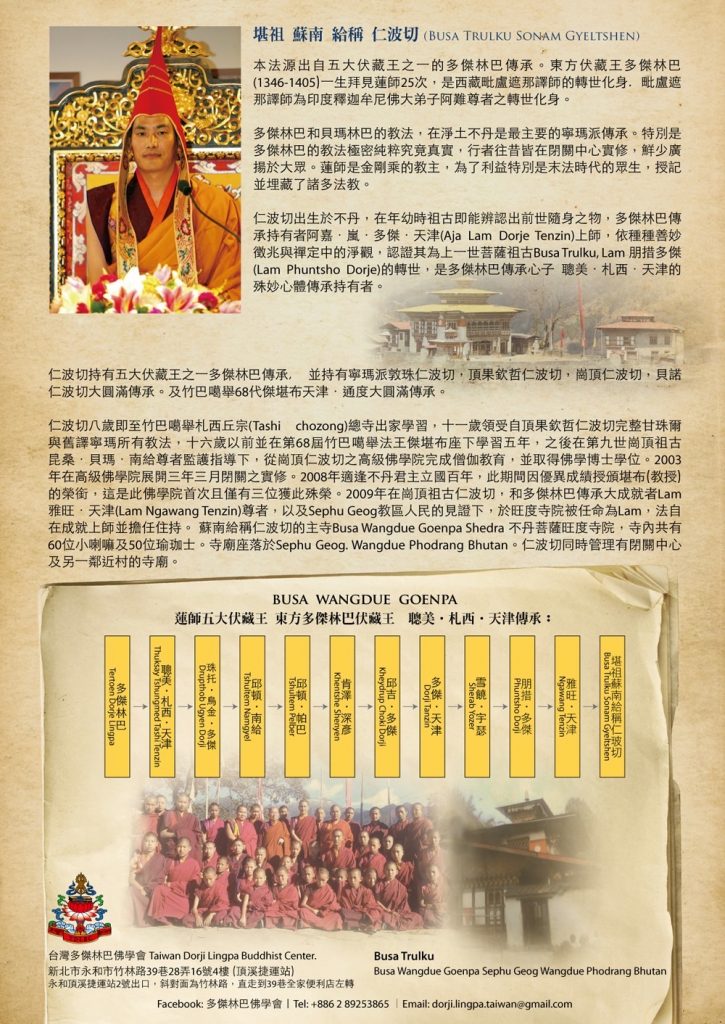 堪祖 蘇南 給稱 仁波切 (Busa Trulku Sonam Gyeltshen)
本法源出自五大伏藏王之一的多傑林巴傳承。東方伏藏王多傑林巴
(1346-1405)一生拜見蓮師25次，是西藏毗盧遮那譯師的轉世化身．毗盧遮
那譯師為印度釋迦牟尼佛大弟子阿難尊者之轉世化身。
多傑林巴和貝瑪林巴的教法，在淨土不丹是最主要的寧瑪派傳承。特別是
多傑林巴的教法極密純粹究竟真實，行者往昔皆在閉關中心實修，鮮少廣
揚於大眾。蓮師是金剛乘的教主，為了利益特別是末法時代的眾生，授記
並埋藏了諸多法教。
仁波切出生於不丹，在年幼時祖古即能辨認出前世隨身之物，多傑林巴傳
承持有者阿嘉．嵐．多傑．天津(Aja Lam Dorje Tenzin)上師，依種種善妙
徵兆與禪定中的淨觀，認證其為上一世菩薩祖古Busa Trulku, Lam 朋措多傑
(Lam Phuntsho Dorje)的轉世，是多傑林巴傳承心子 聰美．札西．天津的
殊妙心體傳承持有者。
仁波切持有五大伏藏王之一多傑林巴傳承， 並持有寧瑪派敦珠仁波切，頂果欽哲仁波切，崗頂仁波切，貝諾
仁波切大圓滿傳承。及竹巴噶舉68代傑堪布天津．通度大圓滿傳承。
仁波切八歲即至竹巴噶舉札西丘宗(Tashi chozong)總寺出家學習，十一歲領受自頂果欽哲仁波切完整甘珠爾
與舊譯寧瑪所有教法，十六歲以前並在第68屆竹巴噶舉法王傑堪布座下學習五年，之後在第九世崗頂祖古
昆桑．貝瑪．南給尊者監護指導下，從崗頂仁波切之高級佛學院完成僧伽教育，並取得佛學博士學位。2003
年在高級佛學院展開三年三月閉關之實修。2008年適逢不丹君主立國百年，此期間因優異成績授頒堪布(教授)
的榮銜，這是此佛學院首次且僅有三位獲此殊榮。2009年在崗頂祖古仁波切，和多傑林巴傳承大成就者Lam
雅旺．天津(Lam Ngawang Tenzin)尊者，以及Sephu Geog教區人民的見證下，於旺度寺院被任命為Lam，法自
在成就上師並擔任住持。 蘇南給稱仁波切的主寺Busa Wangdue Goenpa Shedra 不丹菩薩旺度寺院，寺內共有
60位小喇嘛及50位瑜珈士。寺廟座落於Sephu Geog. Wangdue Phodrang Bhutan。仁波切同時管理有閉關中心
及另一鄰近村的寺廟。
BUSA WANGDUE GOENPA
蓮師五大伏藏王 東方多傑林巴伏藏王 聰美．札西．天津傳承：
多傑林巴
Tertoen Dorje Lingpa
聰美．札西．天津
Thuksay Tshungmed Tashi Tenzin
珠托．烏金．多傑
Drupthob Ugyen Dorji
邱頓．南給
Tshultem Namgyel
邱頓．帕巴
Tshultem Pelber
肯澤．深彥
Khentshe Shenyen
邱吉．多傑
Kheydrup Choki Dorji
多傑．天津
Dorj Tanzin
雪饒．宇瑟
Sherab Yozer
朋措．多傑
Phuntsho Dorji
雅旺．天津
Ngawang Tenzin
堪祖蘇南給稱仁玻切
Busa Trulku Sonam Gyeltshen
台灣多傑林巴佛學會 Taiwan Dorji Lingpa Buddhist Center.
新北市永和市竹林路39巷28弄16號4樓 (頂溪捷運站)
永和頂溪捷運站2號出口，斜對面為竹林路，直走到39巷全家便利店左轉
Busa Trulku
Busa Wangdue Goenpa Sephu Geog Wangdue Phodrang Bhutan
Facebook: 多傑林巴佛學會 | Tel: +886 2 89253865 | Email: dorji.lingpa.taiwan@gmail.com